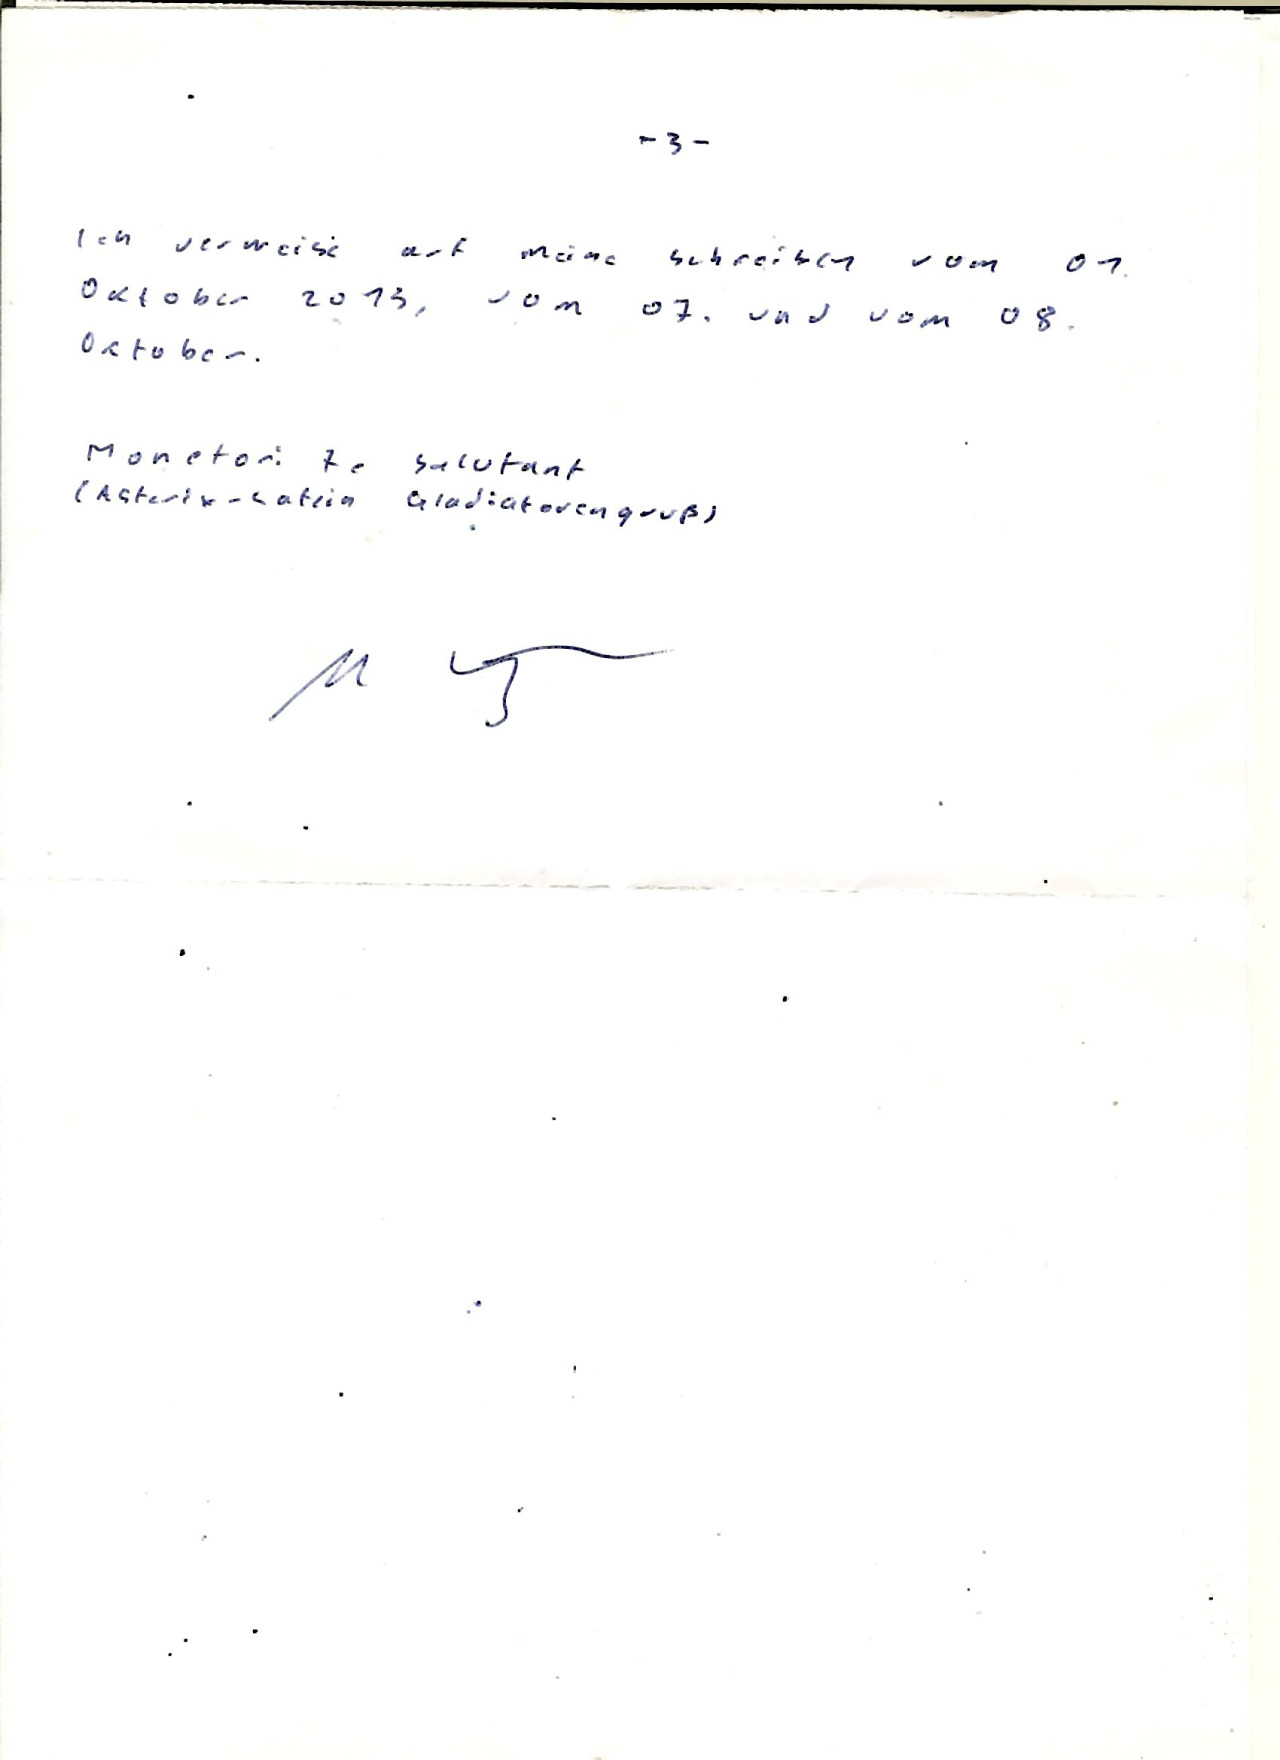 - 3 -
Ich verweise auf meine Schreiben vom 01.
Oktober 2013, vom 07. und vom 08.
Oktober.
Monetori te salutant
(Asterix-Latein Gladiatorengruß)